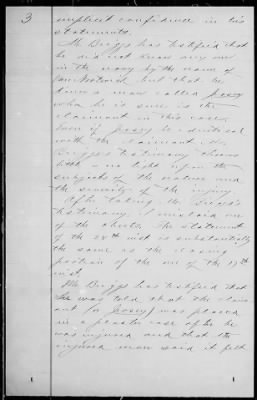 3
implicit confidence in his
statements.
Mr Briggs has testified that
he did not know any one
in the navy by the name of
but that he
knew a man called Jersey
whom he is sure is the
claimant in this case.
Even if Jersey is identical
with the claimant Mr.
Briggs's testimony throws
little or no light upon the
subjects of the nature and
the severity of the injury.
After taking Mr. Briggs's
testimony, I mislaid one
of the sheets. The statement
of the 28th inst is substantially
the same as the closing
portion of the one of the 19th
inst.
Mr Briggs has testified that
he was told that the claim-
ant (or Jersey) was placed
in a plaster case after he
was injured and that the
injured man said it felt
1
1